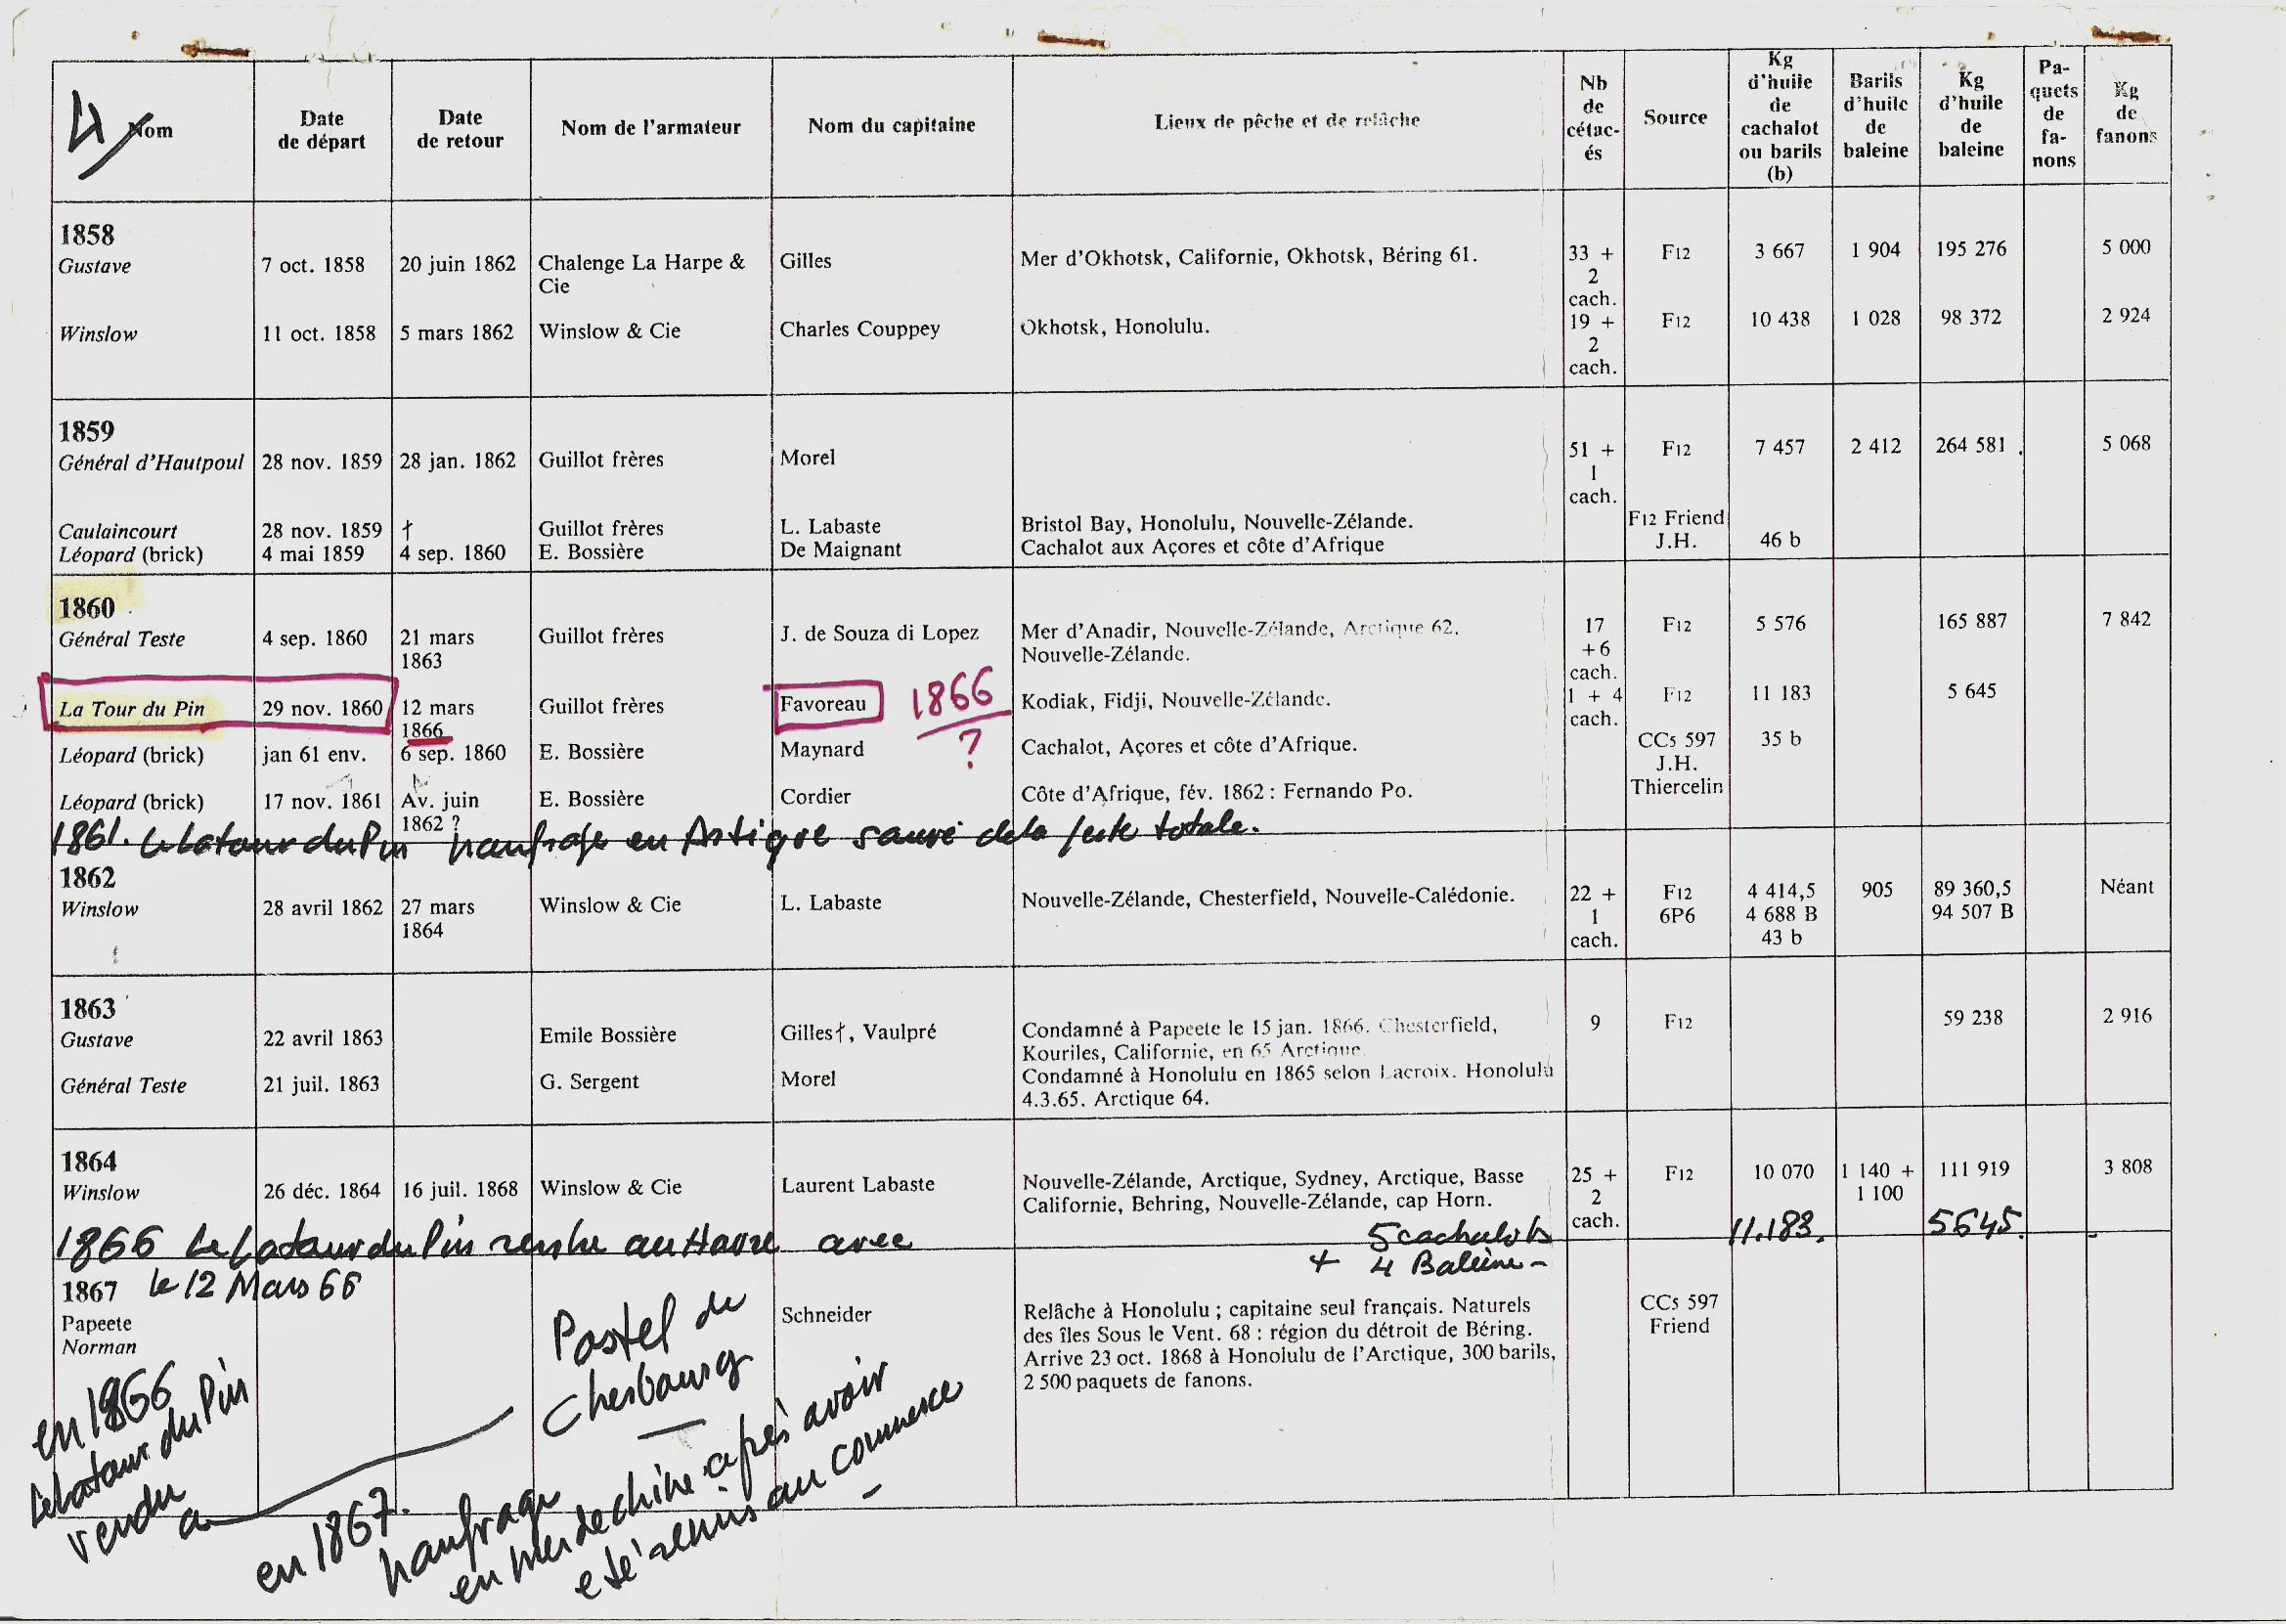 4/
Nom
Date
de départ
Date
de retour
Nom de l'armateur
Nom du capitaine
Lieux de pêche et de relâche
Nb
de
cétac-
és
Source
Kg
d'huile
de
cachalot
ou barils
(b)
Barils
d'huile
de
baleine
Kg
d'huile
de
baleine
Pa-
quets
de
fa-
nons
Kg
de
fanons
1858
Gustave 7 oct. 1858 20 juin 1862 Chalenge La Harpe & Gilles Mer d'Okhotsk, Californie, Okhotsk, Béring 61. 33 + F12 3 667 1 904 195 276 5 000
Cie 2
cach.
Winslow 11 oct. 1858 5 mars 1862 Winslow & Cie Charles Couppey Okhotsk, Honolulu. 19 + F12 10 438 1 028 98 372 2 924
2
cach.
1859
Général d'Hautpoul 28 nov. 1859 28 jan. 1862 Guillot frères Morel 51 + F12 7 457 2 412 264 581 5 068
1
cach.
Caulaincourt 28 nov. 1859 † Guillot frères L. Labaste Bristol Bay, Honolulu, Nouvelle-Zélande. F12 Friend
Léopard (brick) 4 mai 1859 4 sep. 1860 E. Bossière De Maignant Cachalot aux Açores et côte d'Afrique J.H. 46 b
1860
Général Teste 4 sep. 1860 21 mars Guillot frères J. de Souza di Lopez Mer d'Anadir, Nouvelle-Zélande, Arctique 62. 17 F12 5 576 165 887 7 842
1863 Nouvelle-Zélande. +6
cach.
La Tour du Pin 29 nov. 1860 12 mars Guillot frères Favoreau 1866 Kodiak, Fidji, Nouvelle-Zélande. 1 + 4 F12 11 183 5 645
1866 ? cach.
Léopard (brick) jan 61 env. 6 sep. 1860 E. Bossière Maynard Cachalot, Açores et côte d'Afrique. CC5 597 35 b
J.H.
Thiercelin
Léopard (brick) 17 nov. 1861 Av. juin E. Bossière Cordier Côte d'Afrique, fév. 1862 : Fernando Po.
1862 ?
1861. Le Latour du Pin naufrage en Artique sauvé de la perte totale.
1862
Winslow 28 avril 1862 27 mars Winslow & Cie L. Labaste Nouvelle-Zélande, Chesterfield, Nouvelle-Calédonie. 22 + F12 4 414,5 905 89 360,5 Néant
1864 1 6P6 4 688 B 94 507 B
cach. 43 b
1863
Gustave 22 avril 1863 Emile Bossière Gilles†, Vaulpré Condamné à Papeete le 15 jan. 1866. Chesterfield, 9 F12 59 238 2 916
Kouriles, Californie, en 65 Arctique.
Général Teste 21 juil. 1863 G. Sergent Morel Condamné à Honolulu en 1865 selon Lacroix. Honolulu
4.3.65. Arctique 64.
1864
Winslow 26 déc. 1864 16 juil. 1868 Winslow & Cie Laurent Labaste Nouvelle-Zélande, Arctique, Sydney, Arctique, Basse 25 + F12 10 070 1 140 + 111 919 3 808
Californie, Behring, Nouvelle-Zélande, cap Horn. 2 1 100
cach.
1866 Le Latour du Pin rentre au Havre avec 5 cachalots 11.183. 5645.
+ 4 Baleine -
1867 le 12 Mars 66
Papeete Schneider Relâche à Honolulu ; capitaine seul français. Naturels CC5 597
Norman des îles Sous le Vent. 68 : région du détroit de Béring. Friend
Arrive 23 oct. 1868 à Honolulu de l'Arctique, 300 barils,
2 500 paquets de fanons.
en 1866
Le Latour du Pin
vendu
a
Postel de
Cherbourg
en 1867.
naufrage
en mer de chine après avoir
eté remis au commerce